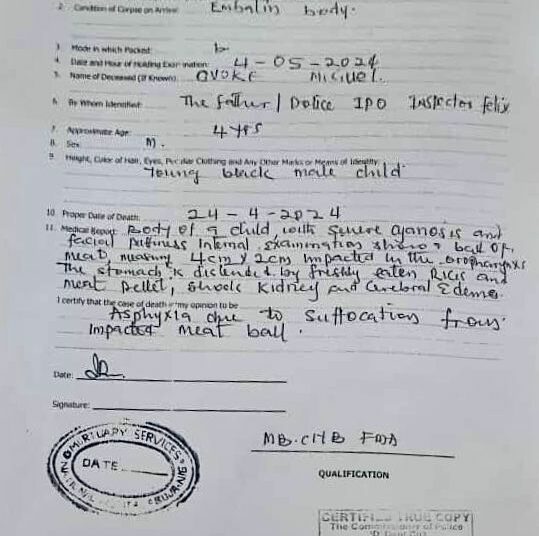 2. Condition of Corpse on Arrival: Embalin body.
3. Mode in which Packed:
4. Date and Hour of Holding Examination: 4-05-2024
5. Name of Deceased (If Known): AVOKE MICHUEL.
6. By Whom Identified: The father / Police IPO Inspector felix
7. Approximate Age: 4 yrs
8. Sex: M.
9. Height, Color of Hair, Eyes, Peculiar Clothing and Any Other Marks or Means of Identity:
Young black male child
10. Proper Date of Death: 24-4-2024
11. Medical Report: Body of a child with severe cyanosis and
facial puffiness Internal examination shows ball of
meat, measuring 4cm x 2cm impacted in the oropharynxs
The stomach is distended by freshly eaten Rice and
meat pellet, shocks kidney and Cerebral Edema.
I certify that the case of death in my opinion to be
Asphyxia due to suffocation from
Impacted meat ball.
Date:
Signature:
MORTUARY SERVICES
DATE
MB.CHB
QUALIFICATION
CERTIFIED TRUE COPY
The Commissioner of Police